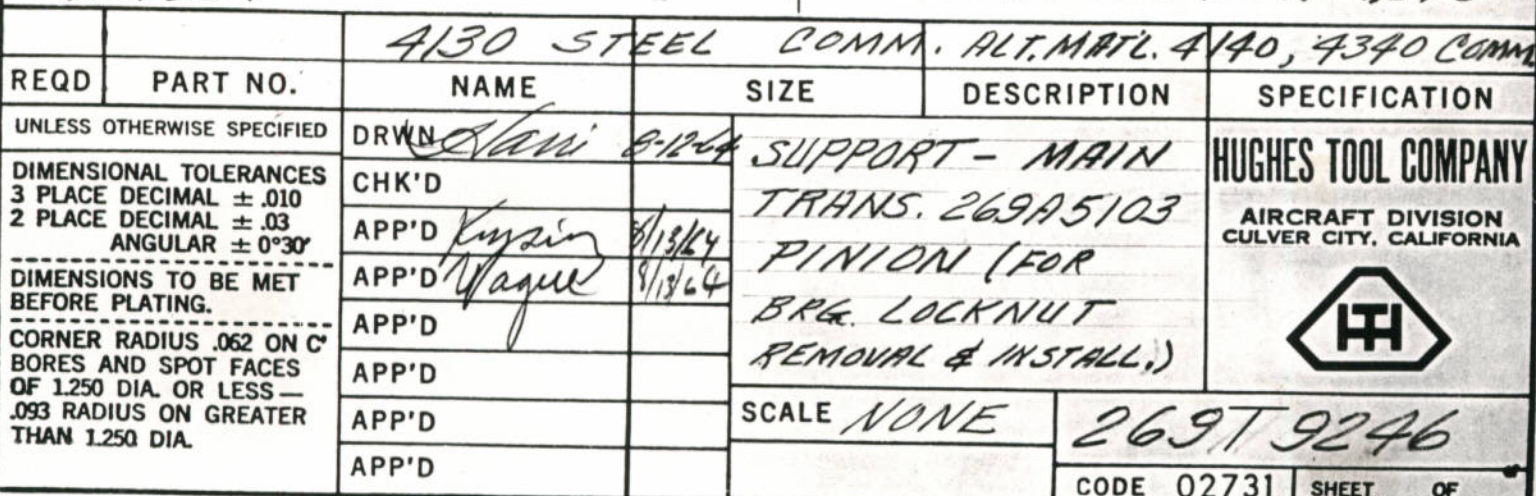 4130 STEEL COMM. ALT. MAT'L. 4140, 4340 COMM
REQD PART NO. NAME SIZE DESCRIPTION SPECIFICATION
UNLESS OTHERWISE SPECIFIED
DIMENSIONAL TOLERANCES
3 PLACE DECIMAL ± .010
2 PLACE DECIMAL ± .03
ANGULAR ± 0°30'
DIMENSIONS TO BE MET
BEFORE PLATING.
CORNER RADIUS .062 ON C'
BORES AND SPOT FACES
OF 1.250 DIA. OR LESS—
.093 RADIUS ON GREATER
THAN 1.250 DIA.
DRWN 8-12-64
CHK'D
APP'D 8/13/64
APP'D 8/13/64
APP'D
APP'D
APP'D
APP'D
SUPPORT - MAIN
TRANS. 269A5103
PINION (FOR
BRG. LOCKNUT
REMOVAL & INSTALL.)
SCALE NONE
HUGHES TOOL COMPANY
AIRCRAFT DIVISION
CULVER CITY, CALIFORNIA
HT
269T9246
CODE 02731 SHEET OF